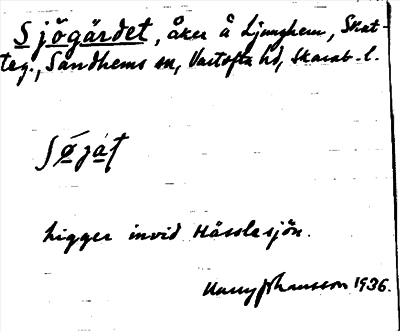 Sjögärdet, åker å Ljunghem, Skat-
teg., Sandhems sn, Vartofta hd, Skarab. l.
ligger invid Hässlesjön.
Harry Johansson 1936.